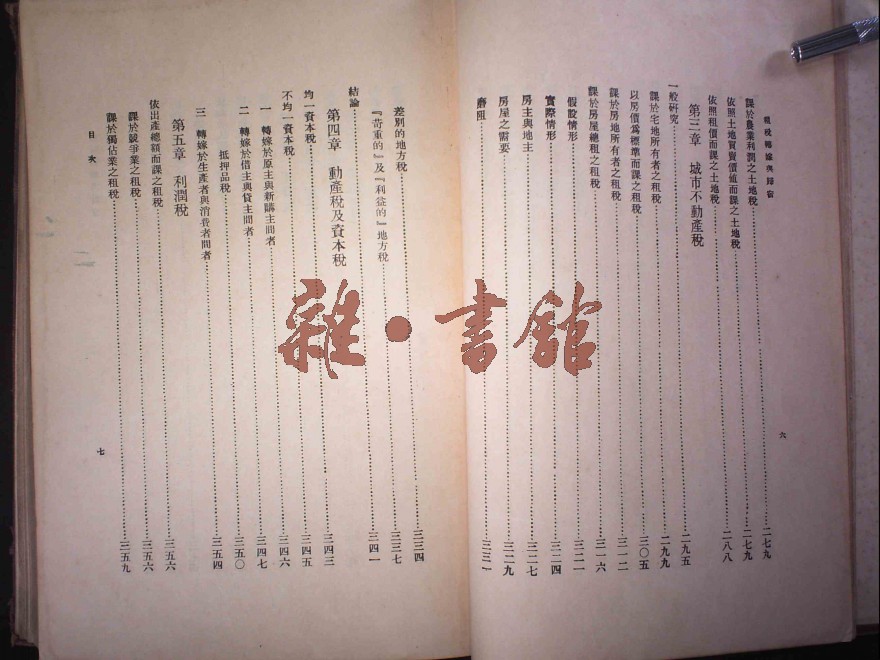 租稅轉嫁與歸宿
課於農業利潤之土地稅 二七九
依照土地買賣價值而課之土地稅 二七九
依照租價而課之土地稅 二八八
第三章 城市不動產稅
一般研究 二九五
課於宅地所有者之租稅 二九九
以房價爲標準而課之租稅 三〇五
課於房地所有者之租稅 三一二
課於房屋總租之租稅 三一六
假設情形 三二一
實際情形 三二四
房主與地主 三二七
房屋之需要 三二九
磨阻
六
差別的地方稅 三三四
『苛重的』及『利益的』地方稅 三三七
結論 三四一
第四章 動產稅及資本稅 三四三
均一資本稅 三四五
不均一資本稅 三四六
一 轉嫁於原主與新購主間者 三四七
二 轉嫁於借主與貸主間者 三五〇
抵押品稅 三五四
三 轉嫁於生產者與消費者間者
第五章 利潤稅
依出產總額而課之租稅 三五六
課於競爭業之租稅 三五六
課於獨佔業之租稅 三五九
目次
七
雜·書館